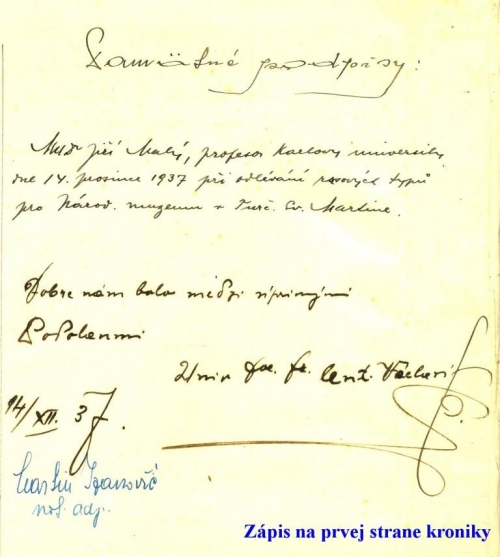 Pamätné podpisy:
MUDr Jiří Malý, profesor Karlovy university
dne 14. prosince 1937 při odlévání rasových typů
pro Národ. museum v Turč. Sv. Martine.
Dobre nám bolo medzi úprimnými
Podolanmi
Univ Doc. Dr.
14/XII. 37.
Martin
not. adj.
Zápis na prvej strane kroniky